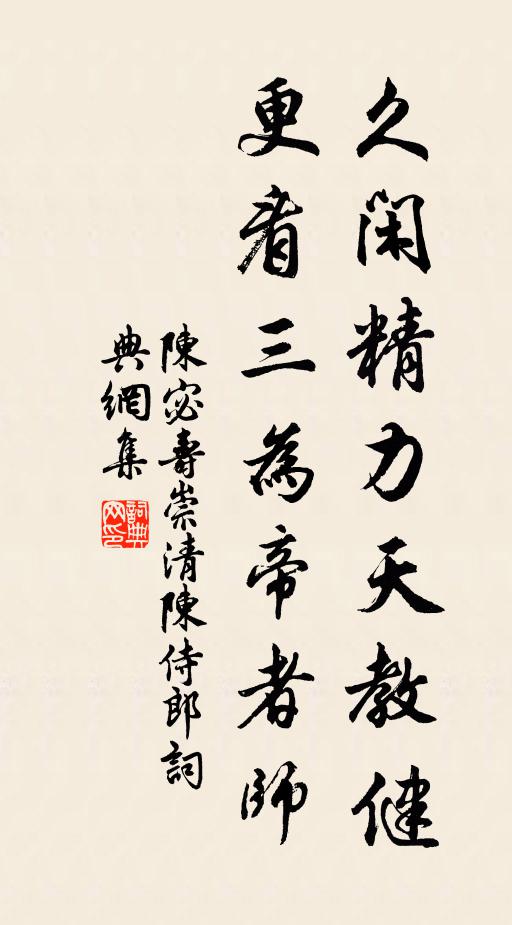 久閑精力天教健
更看三為帝者師
陳宓壽崇清陳侍郎詞
典網集
詞典网印